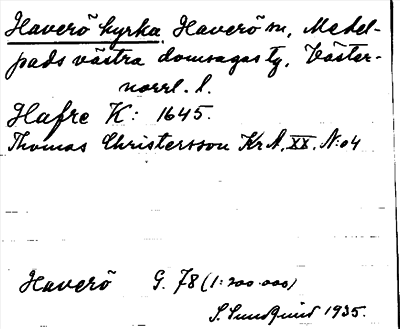 Haverö kyrka, Haverö sn, Medel-
pads västra domsagas tg, Väster-
norrl. l.
Hafre K: 1645.
Thomas Christersson KrA. XX. N:o4
Haverö G. 78 (1:200.000)
S. Sundquist 1935.